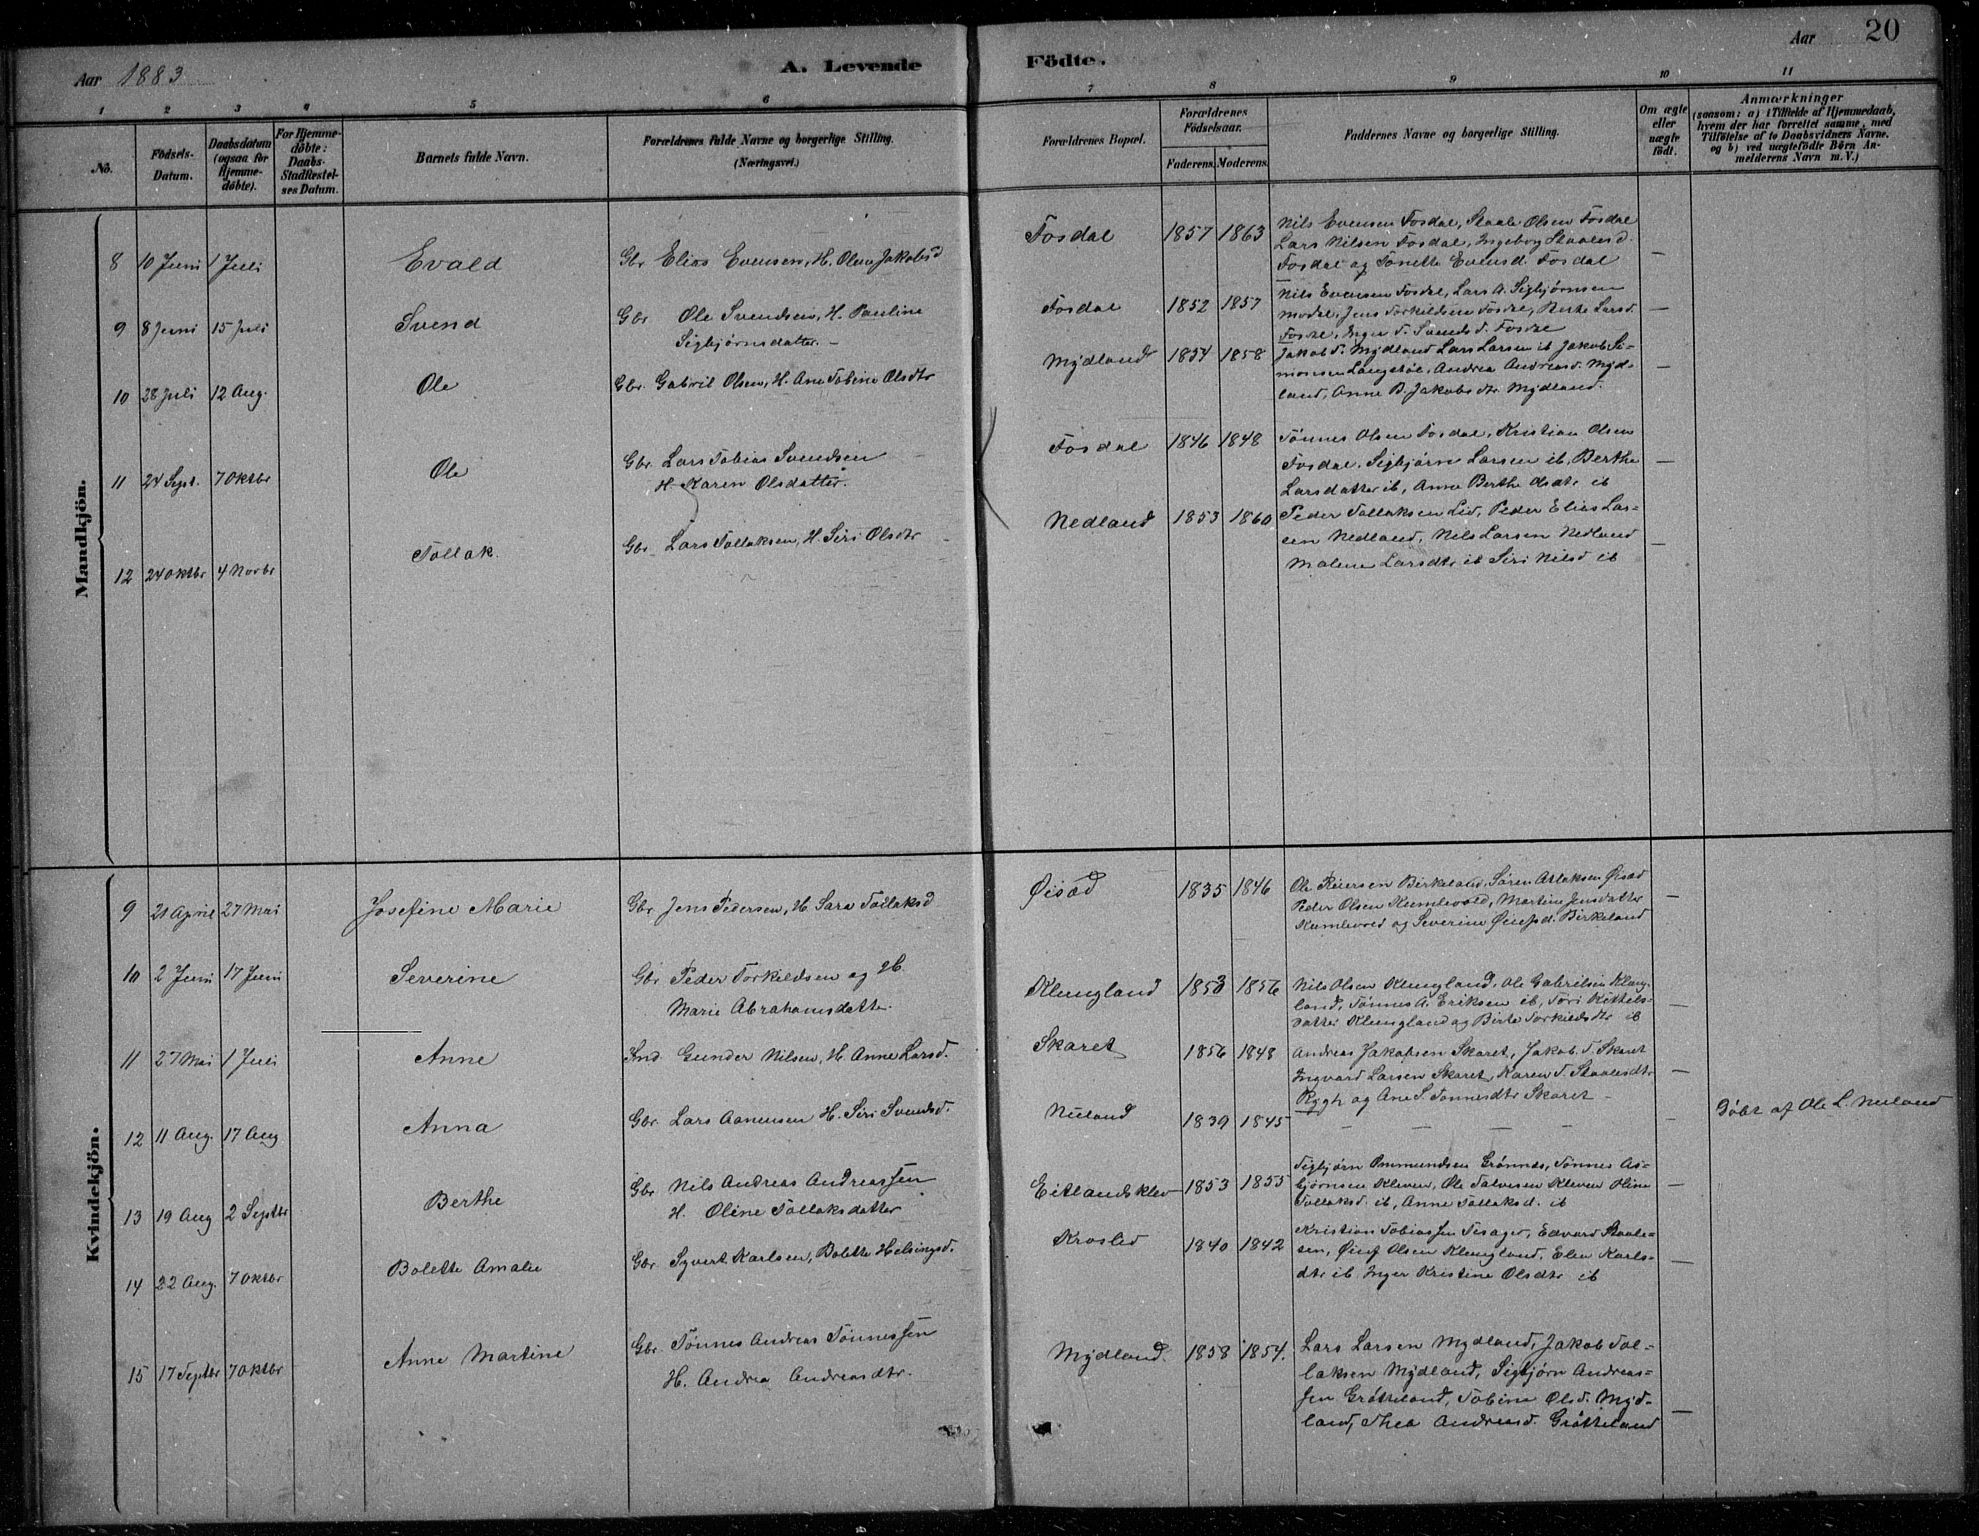 Aar 1883
A. Levende
Födte.
Aar
20
1 2 3 4 5 6 7 8 9 10 11
No.
Födsels-Datum.
Daabsdatum (ogsaa for Hjemme-döbte).
For Hjemme-döbte: Daabs-Stadfæstel-ses Datum.
Barnets fulde Navn.
Forældrenes fulde Navne og borgerlige Stilling. (Næringsvei.)
Forældrenes Bopæl.
Forældrenes Födselsaar.
Faderens. Moderens.
Faddernes Navne og borgerlige Stilling.
Om ægte eller uægte födt.
Anmærkninger
(saasom: a) i Tilfælde af Hjemmedaab,
hvem der har forrettet samme, med
Tilföielse af to Daabsvidners Navne.
og b) ved uægtefödte Börn An-
melderens Navn m. V.)
Mandkjön.
8 10 Juni 1 Juli Evald Gbr Elias Evensen, H. Olene Jakobsd Fosdal 1857 1863
Nils Evensen Fosdal, Staale Olsen Fosdal
Lars Nilsen Fosdal, Ingeborg Staalesd.
Fosdal og Tonette Evensd Fosdal
—
9 8 Juni 15 Juli Svend Gbr Ole Svendsen, H. Pauline
Sigbjørnsdatter. — Fosdal 1852 1857
Nils Evensen Fosdal, Lars A. Sigbjørnsen
Modal, Jens Torkildsen Fosdal, Berte Larsd.
Fosdal, Inger T. Svendsd. Fosdal
—
10 28 Juli 12 Aug. Ole Gbr. Gabril Olsen, H. Ane Tobine Olsdtr Mydland 1854 1858
Jakob T. Mydland Lars Larsen ib Jakob Si-
monsen Langstøl, Andrea Andreasd. Myd-
land, Anne B. Jakobsdtr Mydland.
—
11 24 Sept. 7 Oktbr Ole Gbr. Lars Tobias Svendsen
H. Karen Olsdatter. Fosdal 1846 1848
Tønnes Olsen Fosdal, Kristian Olsen
Fosdal, Sigbjørn Larsen ib, Berthe
Larsdatter ib, Anne Berthe Olsdtr ib
—
12 24 Oktbr 4 Novbr Tollak Gbr. Lars Tollaksen, H. Siri Olsdtr Nedland 1853 1860
Peder Tollaksen Lid, Peder Elias Lar-
sen Nedland, Nils Larsen Nedland
Malene Larsdtr ib Siri Nilsd ib
—
Kvindekjön.
9 21 April 27 Mai Josefine Marie Gbr Jens Pedersen, H. Sara Tollaksd Øisæd 1835 1846
Ole Reiersen Birkeland, Søren Atlaksen Øisæd
Peder Olsen Kumlevold, Martine Jensdatter
Kumlevold og Severine Øinfsd. Birkeland
—
10 2 Juni 17 Juni Severine Gbr. Peder Torkildsen og H
Marie Abrahamsdatter Klungland 1853 1856
Nils Olsen Klungland, Ole Gabrielsen Klung-
land, Tønnes A. Eriksen ib, Tori Kittels-
datter Klungland og Birte Torkildsdtr ib
—
11 27 Mai 1 Juli Anne Ind Gunder Nilsen, H. Anne Larsd. Skaret 1856 1848
Andreas Jakobsen Skaret, Jakob T. Skaret
Ingvard Larsen Skaret, Karen T. Staalesdtr
Rygh og Ane S. Tønnesdtr Skaret —
—
12 11 Aug. 17 Aug Anna Gbr. Lars Aanensen H. Siri Svendsd. Nuland 1839 1845 — — — — — Døbt af Ole L. Nuland
13 19 Aug 2 Septbr Berthe Gbr Nils Andreas Andreassen
H. Oline Tollaksdatter Eitlandsklev 1853 1855
Sigbjørn Ommundsen Grønnes, Tønnes As-
bjørnsen Kleven, Ole Salvesen Kleven Oline
Tollaksd. ib, Anne Tollaksd. ib
—
14 22 Aug. 7 Oktbr Bolette Amalie Gbr Syvert Karlsen, Bolette Helsingsd. Kroslid 1840 1842
Kristian Tobiassen Fisager, Edvard Staale-
sen, Øinf Olsen Klungland, Elen Karls-
dtr ib Inger Kristine Olsdtr ib
—
15 17 Septbr 7 Oktbr Anne Martine Gbr. Tønnes Andreas Tønnessen
H. Andrea Andreasdtr. Mydland. 1858 1854.
Lars Larsen Mydland, Jakob Tol-
laksen Mydland, Sigbjørn Andreas-
sen Grøtteland, Tobine Olsd. Myd-
land, Thea Andreasd. Grøtteland
—